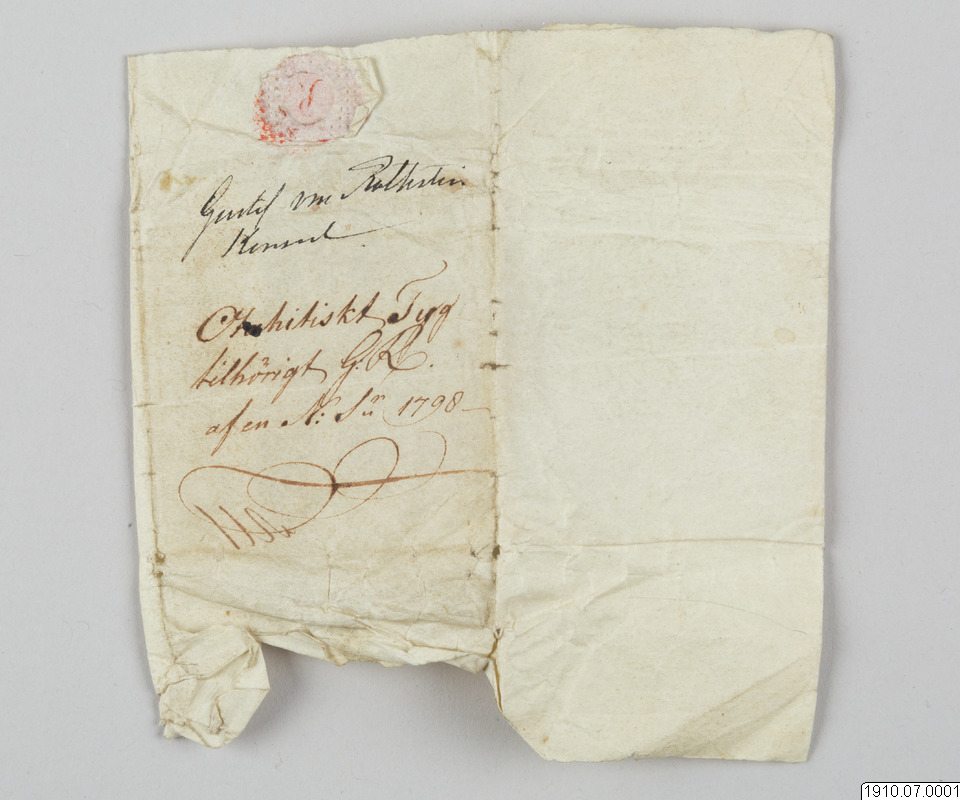 Gustaf von Rothstein
Konsul
Otahitiskt Tyg
tilhörigt G: R.
af en N: S:n 1798
1910.07.0001